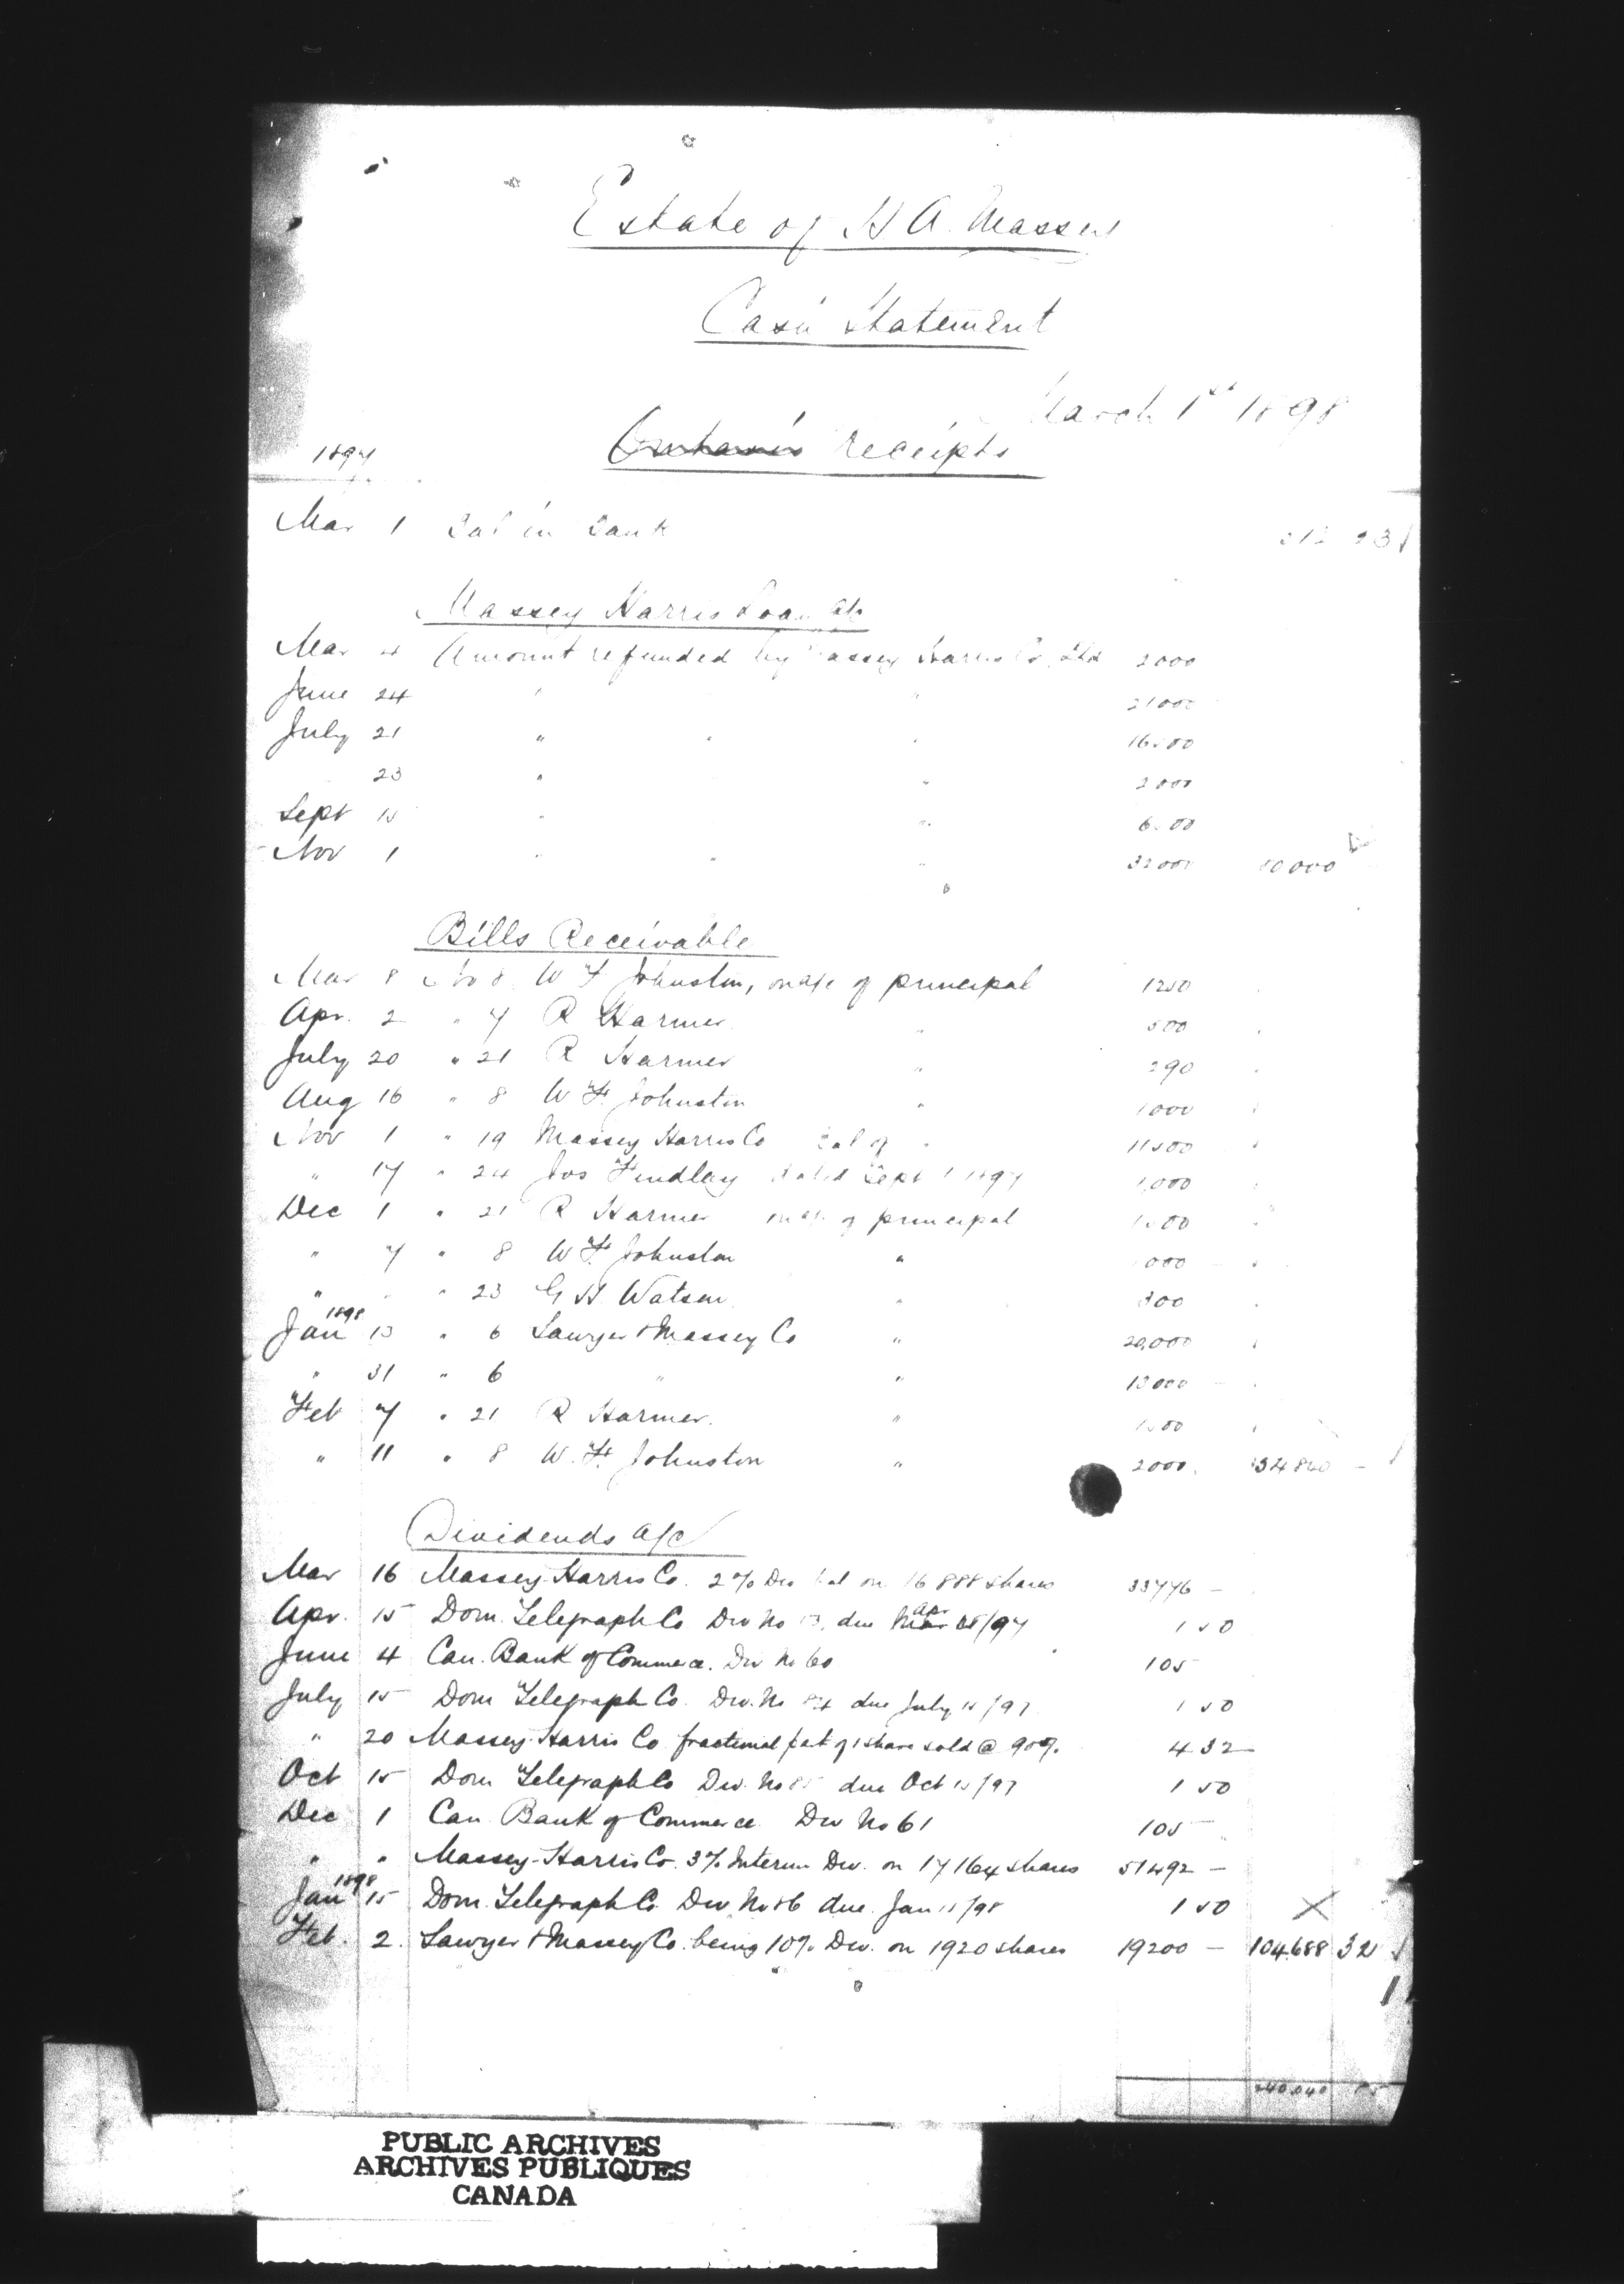 Estate of H A. Massey
Cash Statement
March 1st 1898
1897
Receipts
Mar 1 Bal in Bank
Massey Harris Loan a/c
Mar 4 Amount refunded by Massey Harris Co. Ltd 2000
June 24 " " 21000
July 21 " " " 16500
23 " " 2000
Sept 15 " " 6500
Nov 1 " " " 32000 80000
Bills Receivable
Mar 8 No 8 W F Johnston, on a/c of principal 1250
Apr. 2 " 7 R Harmer " 500
July 20 " 21 R Harmer " 290
Aug 16 " 8 W F. Johnston " 1000
Nov 1 " 19 Massey Harris Co Bal of " 11500
" 17 " 24 Jos Findlay dated Sept 1 1897 1,000
Dec 1 " 21 R Harmer on a/c of principal
" 7 " 8 W F. Johnston "
" " " 23 G H Watson "
1898
Jan 13 " 6 Sawyer & Massey Co " 20,000
" 31 " 6 " " 13000 -
Feb 7 " 21 R Harmer. "
" 11 " 8 W. F. Johnston " 2000.
Dividends a/c
Mar 16 Massey-Harris Co. 2% Div bal on 16888 shares 33776 -
Apr. 15 Dom. Telegraph Co Div No 83, due Mar Apr 15/97 1 50
June 4 Can. Bank of Commerce. Div No 60 105
July 15 Dom Telegraph Co. Div. No 84 due July 15/97 1 50
" 20 Massey-Harris Co fractional part of 1 share sold @ 90%. 4 32
Oct 15 Dom Telegraph Co Div. No 85 due Oct 15/97 1 50
Dec 1 Can Bank of Commerce Div No 61 105
" " Massey-Harris Co. 3% Interim Div. on 17164 shares 51492 -
1898
Jan 15 Dom. Telegraph Co. Div No 86 due Jan 15/98 1 50
Feb. 2. Sawyer & Massey Co. being 10% Div. on 1920 shares 19200 - 104688 32
PUBLIC ARCHIVES
ARCHIVES PUBLIQUES
CANADA